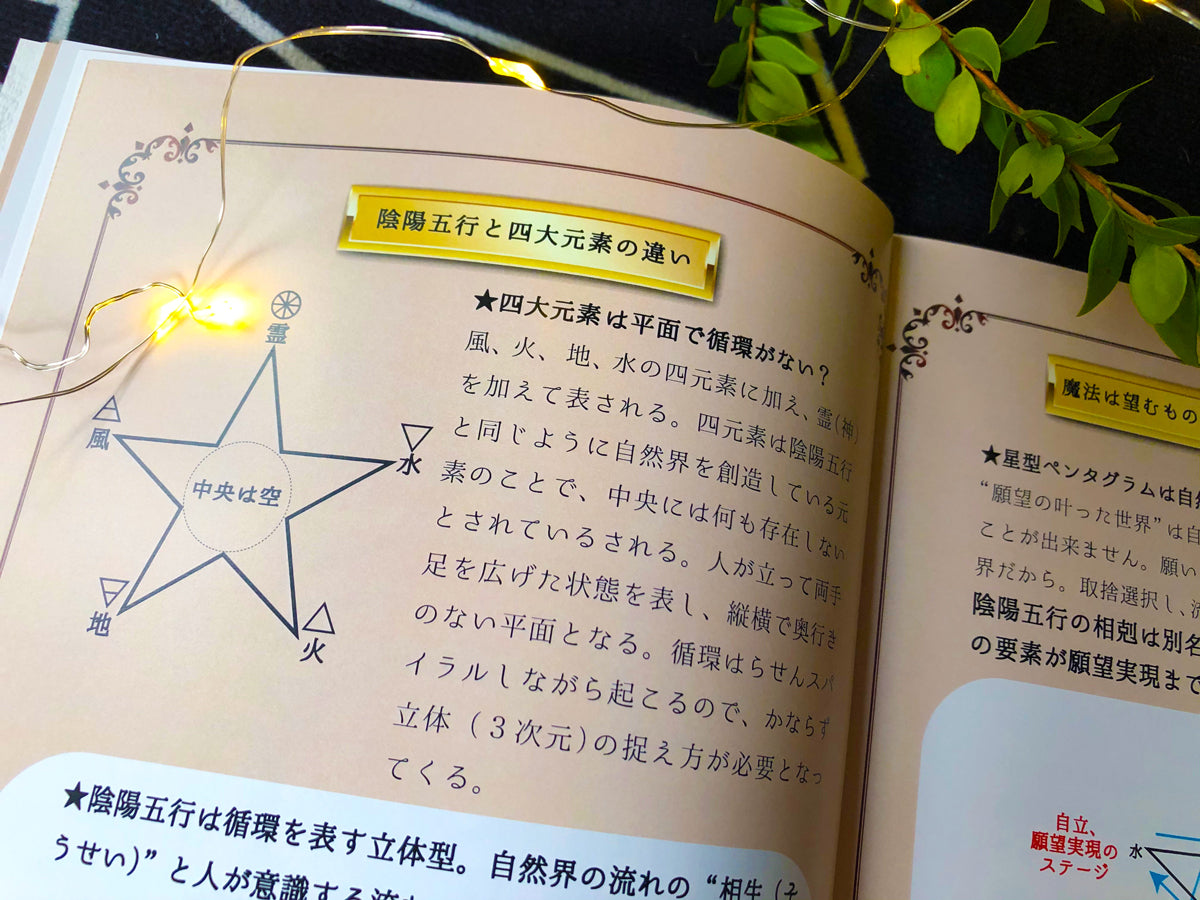 陰陽五行と四大元素の違い
★四大元素は平面で循環がない?
風、火、地、水の四元素に加え、霊(神)
を加えて表される。四元素は陰陽五行
と同じように自然界を創造している元
素のことで、中央には何も存在しない
とされているされる。人が立って両手
足を広げた状態を表し、縦横で奥行き
のない平面となる。循環はらせんスパ
イラルしながら起こるので、かならず
立体(3次元)の捉え方が必要となっ
てくる。
霊
風
水
中央は空
地
火
★陰陽五行は循環を表す立体型。自然界の流れの“相生(そ
うせい)”と人が意識する
魔法は望むもの
★星型ペンタグラムは自然
“願望の叶った世界”は自
ことが出来ません。願い
界だから。取捨選択し、
陰陽五行の相剋は別名
の要素が願望実現まで
自立、
願望実現の
ステージ
水